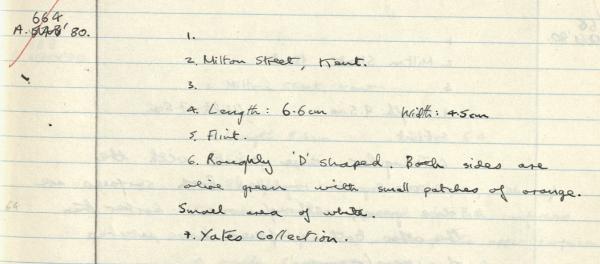 664
A. '80.
1.
2. Milton Street, Kent.
3.
4. Length: 6.6cm Width: 4.5cm
5. Flint.
6. Roughly 'D' shaped. Both sides are
olive green with small patches of orange.
Small area of white.
7. Yates Collection.